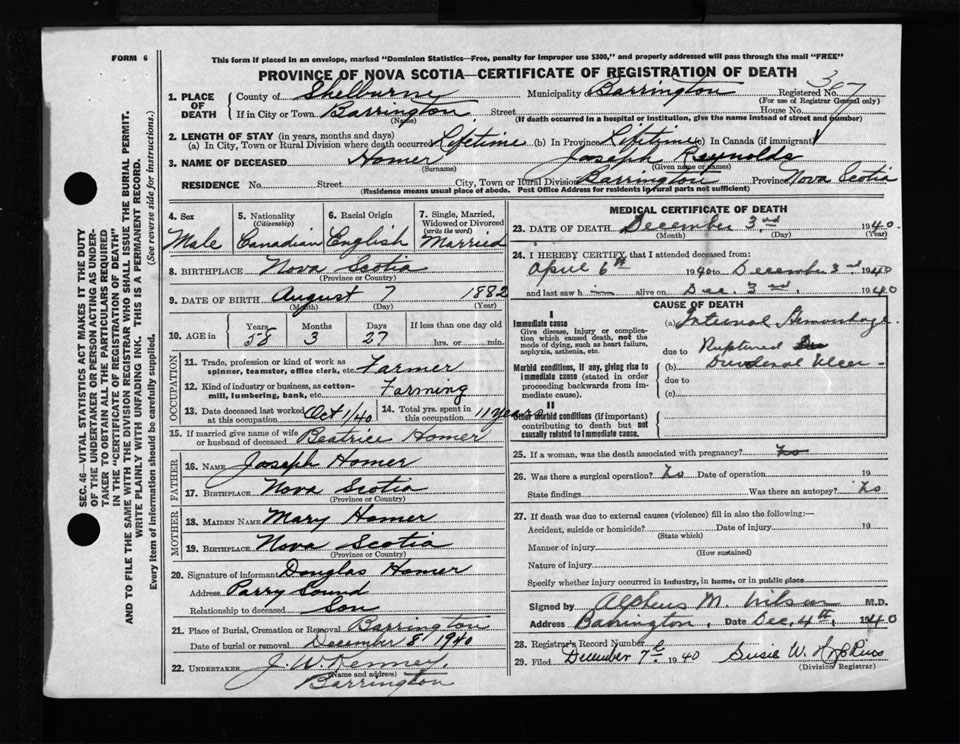 FORM 6
This form if placed in an envelope, marked "Dominion Statistics—Free, penalty for improper use $300," and properly addressed will pass through the mail "FREE"
PROVINCE OF NOVA SCOTIA—CERTIFICATE OF REGISTRATION OF DEATH
307
1. PLACE OF DEATH
County of Shelburne Municipality of Barrington Registered No.
(For use of Registrar General only)
If in City or Town Barrington Street House No.
(Name) (If death occurred in a hospital or institution, give the name instead of street and number)
2. LENGTH OF STAY (in years, months and days)
(a) In City, Town or Rural Division where death occurred Lifetime (b) In Province Lifetime (c) In Canada (if immigrant)
3. NAME OF DECEASED Homer Joseph Reynolds
(Surname) (Given name or names)
RESIDENCE No. Street City, Town or Rural Division Barrington Province Nova Scotia
(Residence means usual place of abode. Post Office Address for residents in rural parts not sufficient)
4. Sex Male
5. Nationality (Citizenship) Canadian
6. Racial Origin English
7. Single, Married, Widowed or Divorced (write the word) Married
8. BIRTHPLACE Nova Scotia
(Province or Country)
9. DATE OF BIRTH August 7 1882
(Month) (Day) (Year)
10. AGE in Years 58 Months 3 Days 27 If less than one day old
hrs. or min.
OCCUPATION
11. Trade, profession or kind of work as spinner, teamster, office clerk, etc. Farmer
12. Kind of industry or business, as cotton-mill, lumbering, bank, etc. Farming
13. Date deceased last worked at this occupation Oct 1/40 14. Total yrs. spent in this occupation 11 years
15. If married give name of wife or husband of deceased Beatrice Homer
FATHER
16. NAME Joseph Homer
17. BIRTHPLACE Nova Scotia
(Province or Country)
MOTHER
18. MAIDEN NAME Mary Homer
19. BIRTHPLACE Nova Scotia
(Province or Country)
20. Signature of informant Douglas Homer
Address Parry Sound
Relationship to deceased Son
21. Place of Burial, Cremation or Removal Barrington
Date of burial or removal December 8 1940
22. UNDERTAKER J. W. Kenney,
(Name and address)
Barrington
MEDICAL CERTIFICATE OF DEATH
23. DATE OF DEATH December 3rd 1940.
(Month) (Day) (Year)
24. I HEREBY CERTIFY, that I attended deceased from:
April 6th 1940 to December 3rd 1940
and last saw him alive on Dec. 3rd. 1940
CAUSE OF DEATH
I
Immediate cause
Give disease, injury or complication which caused death, not the mode of dying, such as heart failure, asphyxia, asthenia, etc.
(a) Internal Hemorrhage.
due to Ruptured
Morbid conditions, if any, giving rise to immediate cause (stated in order proceeding backwards from immediate cause).
(b) Duodenal Ulcer
due to
(c)
II
Other morbid conditions (if important) contributing to death but not causally related to immediate cause.
25. If a woman, was the death associated with pregnancy? No
26. Was there a surgical operation? No Date of operation 19
State findings Was there an autopsy? No
27. If death was due to external causes (violence) fill in also the following:—
Accident, suicide or homicide? Date of injury 19
(State which)
Manner of injury
(How sustained)
Nature of injury
Specify whether injury occurred in industry, in home, or in public place
Signed by Alpheus M. Wilson M.D.
Address Barrington, Date Dec. 4th, 1940
28. Registrar's Record Number
29. Filed December 7th 1940 Susie W. Hopkins
(Division Registrar)
SEC. 46—VITAL STATISTICS ACT MAKES IT THE DUTY
OF THE UNDERTAKER OR PERSON ACTING AS UNDER-
TAKER TO OBTAIN ALL THE PARTICULARS REQUIRED
IN THE "CERTIFICATE OF REGISTRATION OF DEATH"
AND TO FILE THE SAME WITH THE DIVISION REGISTRAR WHO SHALL ISSUE THE BURIAL PERMIT.
WRITE PLAINLY WITH UNFADING INK. THIS IS A PERMANENT RECORD.
Every item of information should be carefully supplied. (See reverse side for instructions.)